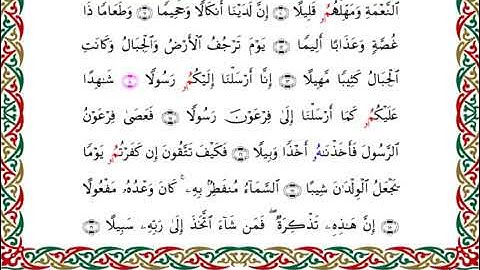 ٱلنَّعۡمَةِ وَمَهِّلۡهُمُۥ قَلِيلًا ۝ إِنَّ لَدَيۡنَآ أَنكَالًا وَجَحِيمًا ۝ وَطَعَامًا ذَا
غُصَّةٍ وَعَذَابًا أَلِيمًا ۝ يَوۡمَ تَرۡجُفُ ٱلۡأَرۡضُ وَٱلۡجِبَالُ وَكَانَتِ
ٱلۡجِبَالُ كَثِيبًا مَّهِيلًا ۝ إِنَّآ أَرۡسَلۡنَآ إِلَيۡكُمُۥ رَسُولًا ۝ شَٰهِدًا
عَلَيۡكُمُۥ كَمَآ أَرۡسَلۡنَآ إِلَىٰ فِرۡعَوۡنَ رَسُولًا ۝ فَعَصَىٰ فِرۡعَوۡنُ
ٱلرَّسُولَ فَأَخَذۡنَٰهُۥ أَخۡذًا وَبِيلًا ۝ فَكَيۡفَ تَتَّقُونَ إِن كَفَرۡتُمُۥ يَوۡمًا
يَجۡعَلُ ٱلۡوِلۡدَٰنَ شِيبًا ۝ ٱلسَّمَآءُ مُنفَطِرٌۢ بِهِۦۚ كَانَ وَعۡدُهُۥ مَفۡعُولًا
۝ إِنَّ هَٰذِهِۦ تَذۡكِرَةٌۖ فَمَن شَآءَ ٱتَّخَذَ إِلَىٰ رَبِّهِۦ سَبِيلًا ۝